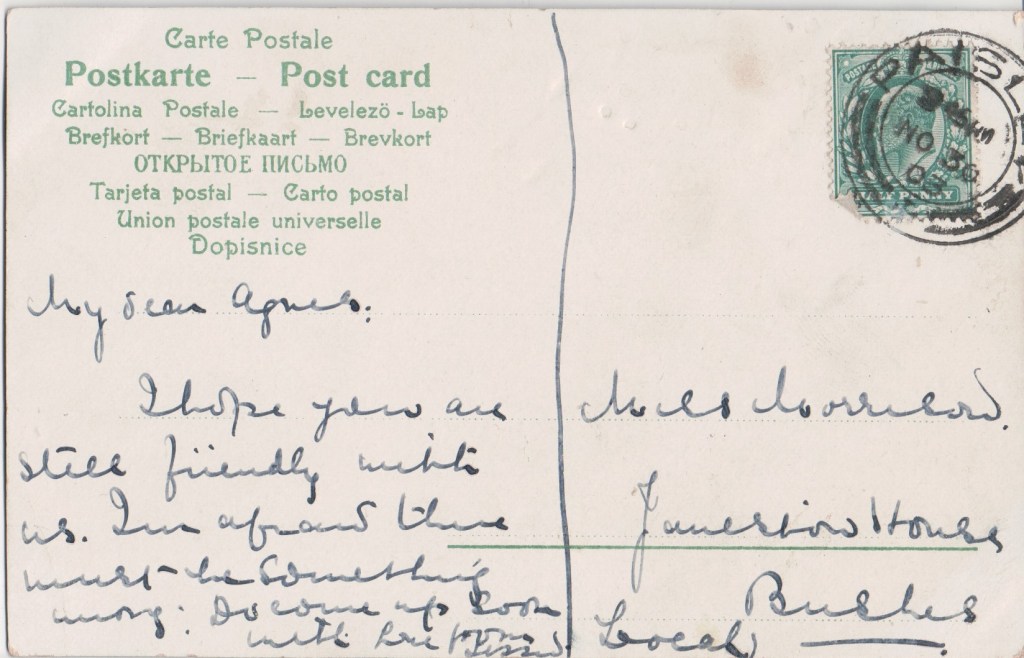 Carte Postale
Postkarte — Post card
Cartolina Postale — Levelező-Lap
Brefkort — Briefkaart — Brevkort
ОТКРЫТОЕ ПИСЬМО
Tarjeta postal — Carto postal
Union postale universelle
Dopisnice
PAISLEY
NO 30
HALF PENNY
My dear Agnes:
I hope you are
still friendly with
us. I'm afraid there
must be something
wrong. Do come up soon
with love from
Miss Morrison.
House
Bushes
Local